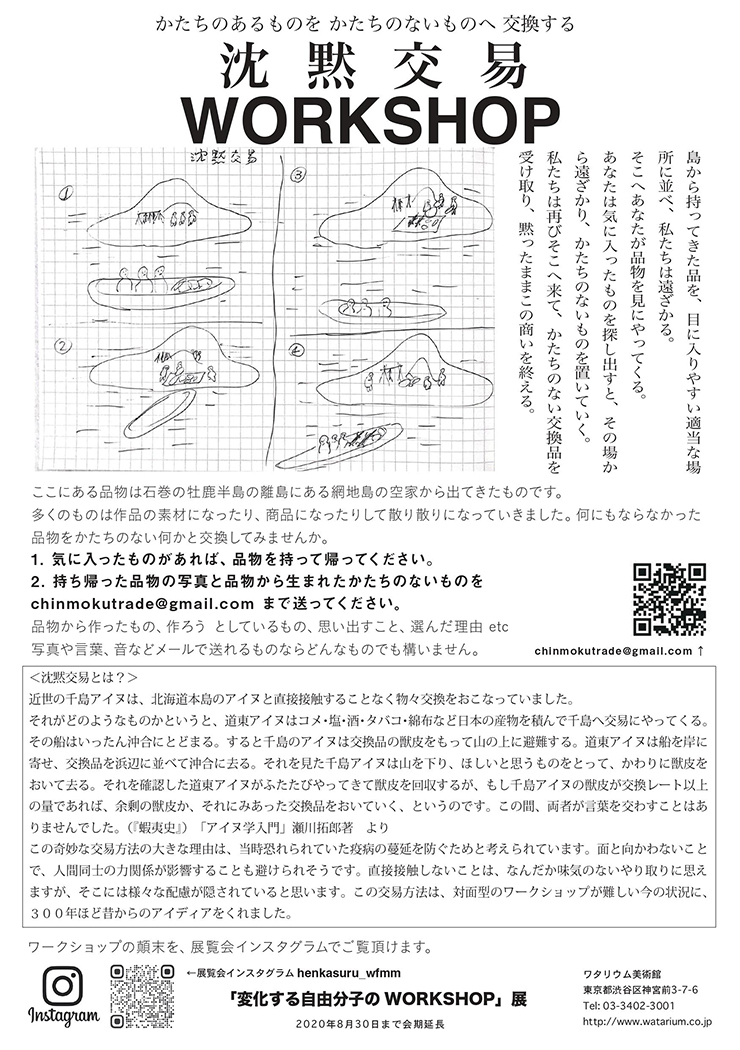 かたちのあるものを かたちのないものへ 交換する
沈黙交易
WORKSHOP
島から持ってきた品を、目に入りやすい適当な場
所に並べ、私たちは遠ざかる。
そこへあなたが品物を見にやってくる。
あなたは気に入ったものを探し出すと、その場か
ら遠ざかり、かたちのないものを置いていく。
私たちは再びそこへ来て、かたちのない交換品を
受け取り、黙ったままこの商いを終える。
沈黙交易
①
②
③
④
ここにある品物は石巻の牡鹿半島の離島にある網地島の空家から出てきたものです。
多くのものは作品の素材になったり、商品になったりして散り散りになっていきました。何にもならなかった
品物をかたちのない何かと交換してみませんか。
1. 気に入ったものがあれば、品物を持って帰ってください。
2. 持ち帰った品物の写真と品物から生まれたかたちのないものを
chinmokutrade@gmail.com まで送ってください。
品物から作ったもの、作ろう としているもの、思い出すこと、選んだ理由 etc
写真や言葉、音などメールで送れるものならどんなものでも構いません。
chinmokutrade@gmail.com ↑
＜沈黙交易とは？＞
近世の千島アイヌは、北海道本島のアイヌと直接接触することなく物々交換をおこなっていました。
それがどのようなものかというと、道東アイヌはコメ・塩・酒・タバコ・綿布など日本の産物を積んで千島へ交易にやってくる。
その船はいったん沖合にとどまる。すると千島のアイヌは交換品の獣皮をもって山の上に避難する。道東アイヌは船を岸に
寄せ、交換品を浜辺に並べて沖合に去る。それを見た千島アイヌは山を下り、ほしいと思うものをとって、かわりに獣皮を
おいて去る。それを確認した道東アイヌがふたたびやってきて獣皮を回収するが、もし千島アイヌの獣皮が交換レート以上
の量であれば、余剰の獣皮か、それにみあった交換品をおいていく、というのです。この間、両者が言葉を交わすことはあ
りませんでした。（『蝦夷史』）「アイヌ学入門」瀬川拓郎著　より
この奇妙な交易方法の大きな理由は、当時恐れられていた疫病の蔓延を防ぐためと考えられています。面と向かわないこと
で、人間同士の力関係が影響することも避けられそうです。直接接触しないことは、なんだか味気のないやり取りに思え
ますが、そこには様々な配慮が隠されていると思います。この交易方法は、対面型のワークショップが難しい今の状況に、
３００年ほど昔からのアイディアをくれました。
ワークショップの顛末を、展覧会インスタグラムでご覧頂けます。
Instagram
←展覧会インスタグラム henkasuru_wfmm
「変化する自由分子の WORKSHOP」展
2020年8月30日まで会期延長
ワタリウム美術館
東京都渋谷区神宮前3-7-6
Tel: 03-3402-3001
http://www.watarium.co.jp